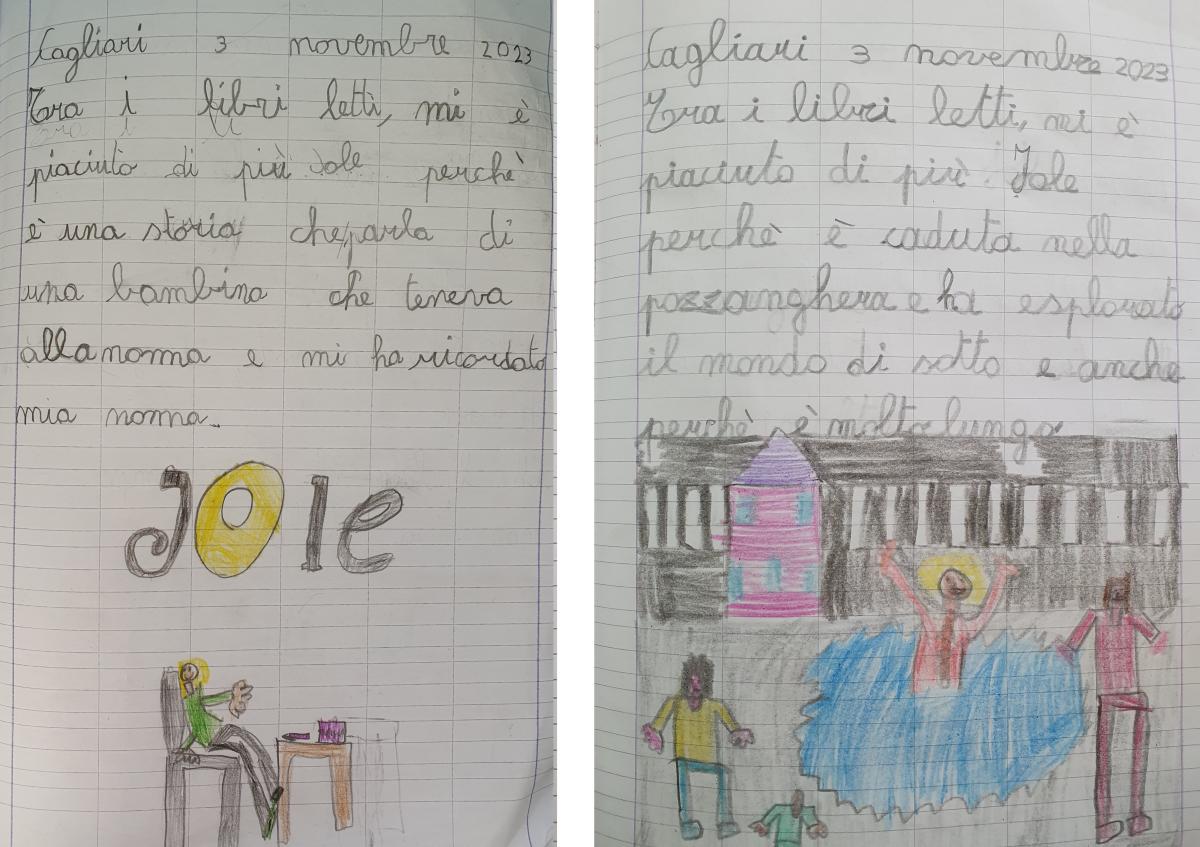 Cagliari 3 novembre 2023
Tra i libri letti, mi è
piaciuto di più Jole perchè
è una storia che parla di
una bambina che teneva
alla nonna e mi ha ricordato
mia nonna.
JOle
Cagliari 3 novembre 2023
Tra i libri letti, mi è
piaciuto di più Jole
perchè è caduta nella
pozzanghera e ha esplorato
il mondo di sotto e anche
perchè è molto lungo